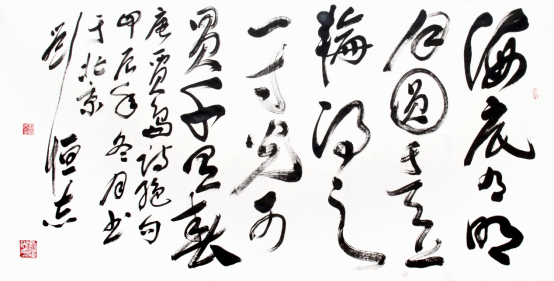 海底有明
月圆于天上
轮得之
一寸光可
买千里春
唐贾岛诗绝句
甲辰年冬月书
于北京
刘恒志